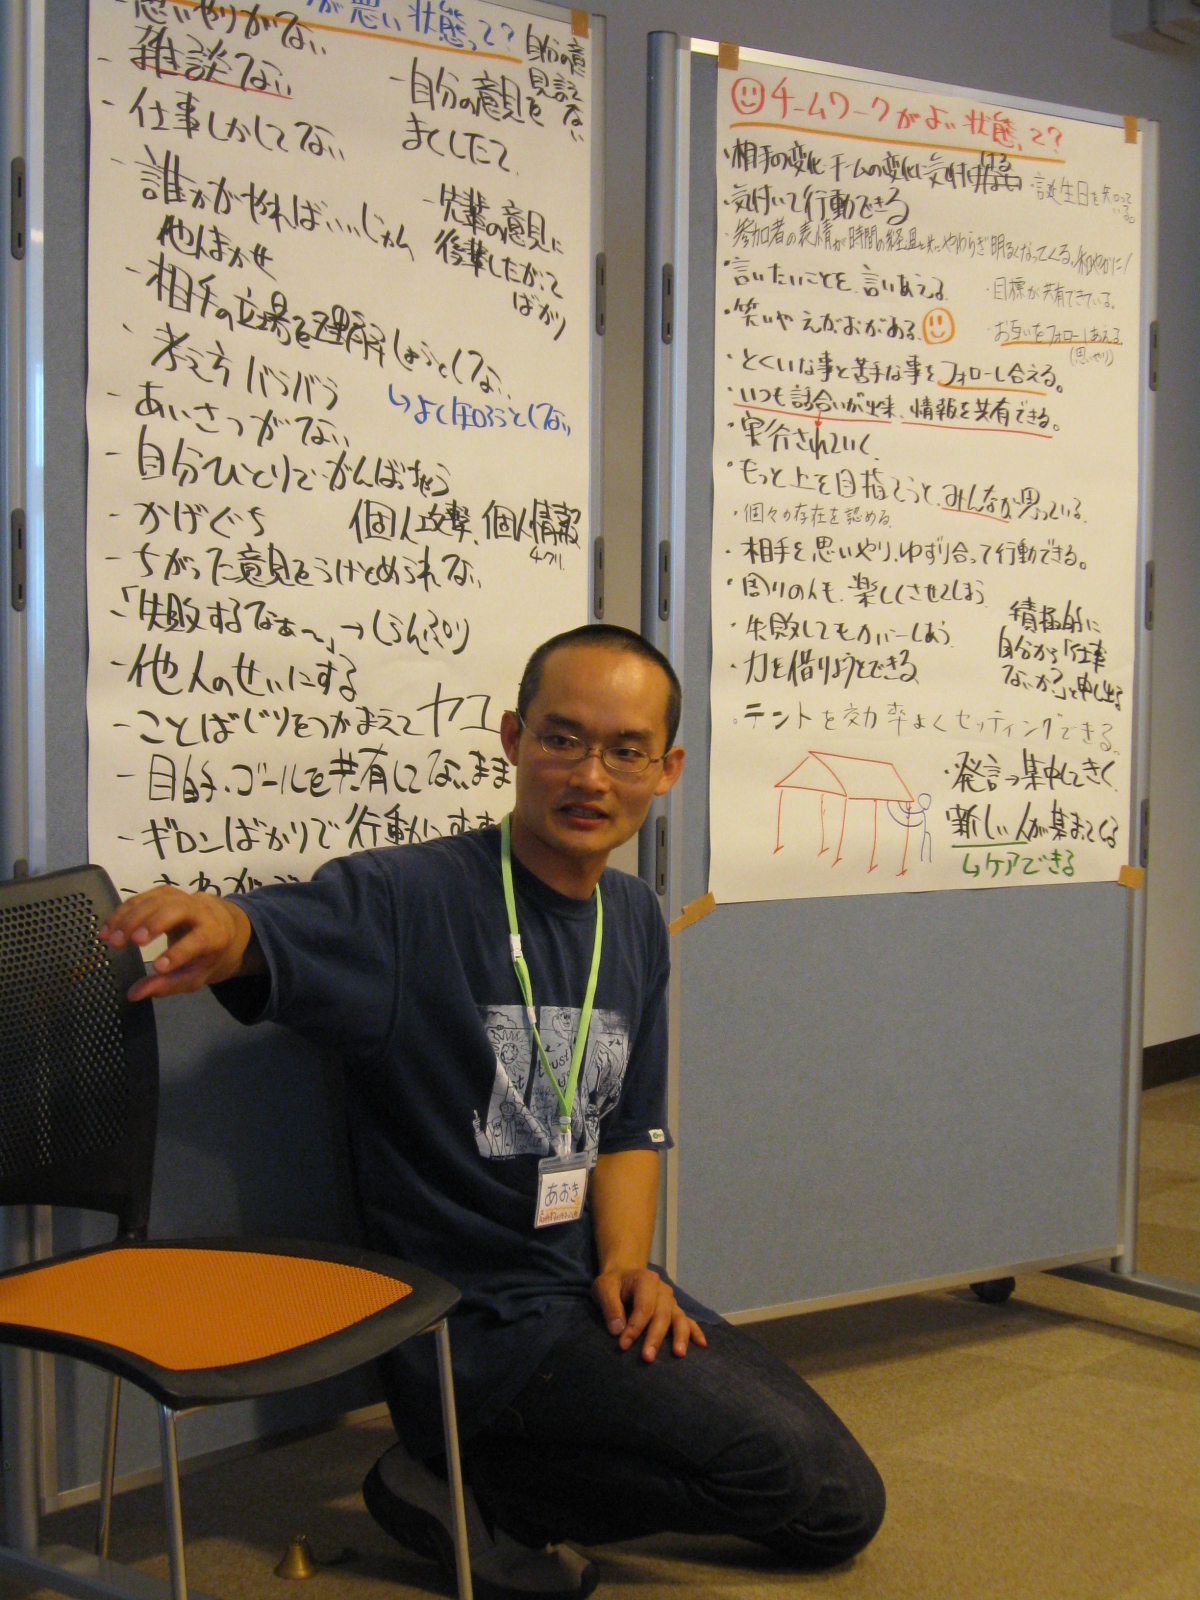 思いやりがない
が悪い状態って?
- 雑談ない
- 自分の意見を
まくしたて
自分の意
見言え
ない
- 仕事しかしてない
- 誰かがやればいいじゃん
他人まかせ
- 先輩の意見に
後輩したがって
ばかり
- 相手の立場を理解しようとしない
- 考え方バラバラ
- あいさつがない
- 自分ひとりでがんばっちゃう
- かげぐち
個人攻撃、個人情報
- ちがった意見をうけとめられない
- 「失敗するなぁ〜」→しらんぷり
- 他人のせいにする
- ことばじりをつかまえて
- 目的、ゴールを共有してないまま
- ギロンばかりで行動に
チームワークがよい状態って?
・相手の変化チームの変化に気付ける
・誕生日を知って
いる。
・気付いて行動できる
・参加者の表情が時間の経過と共にやわらぎ明るくなってくる。和やかに!
・言いたいことを、言いあえる。
・目標が共有できている。
・笑いやえがおがある。
・お互いをフォローしあえる。
(思いやり)
・とくいな事と苦手な事をフォローし合える。
・いつも話合いが出来、情報を共有できる。
・実行されていく
・もっと上を目指そうと、みんなが思っている。
・個々の存在を認める。
・相手を思いやり、ゆずり合って行動できる。
・周りの人も、楽しくさせてしまう
・失敗してもカバーしあう
・力を借りようとできる
積極的に
自分から「仕事
ないか?」と申し出る
・テントを効率よくセッティングできる。
・発言っ集中してきく
・新しい人が集まってくる
↳ケアできる
あおき